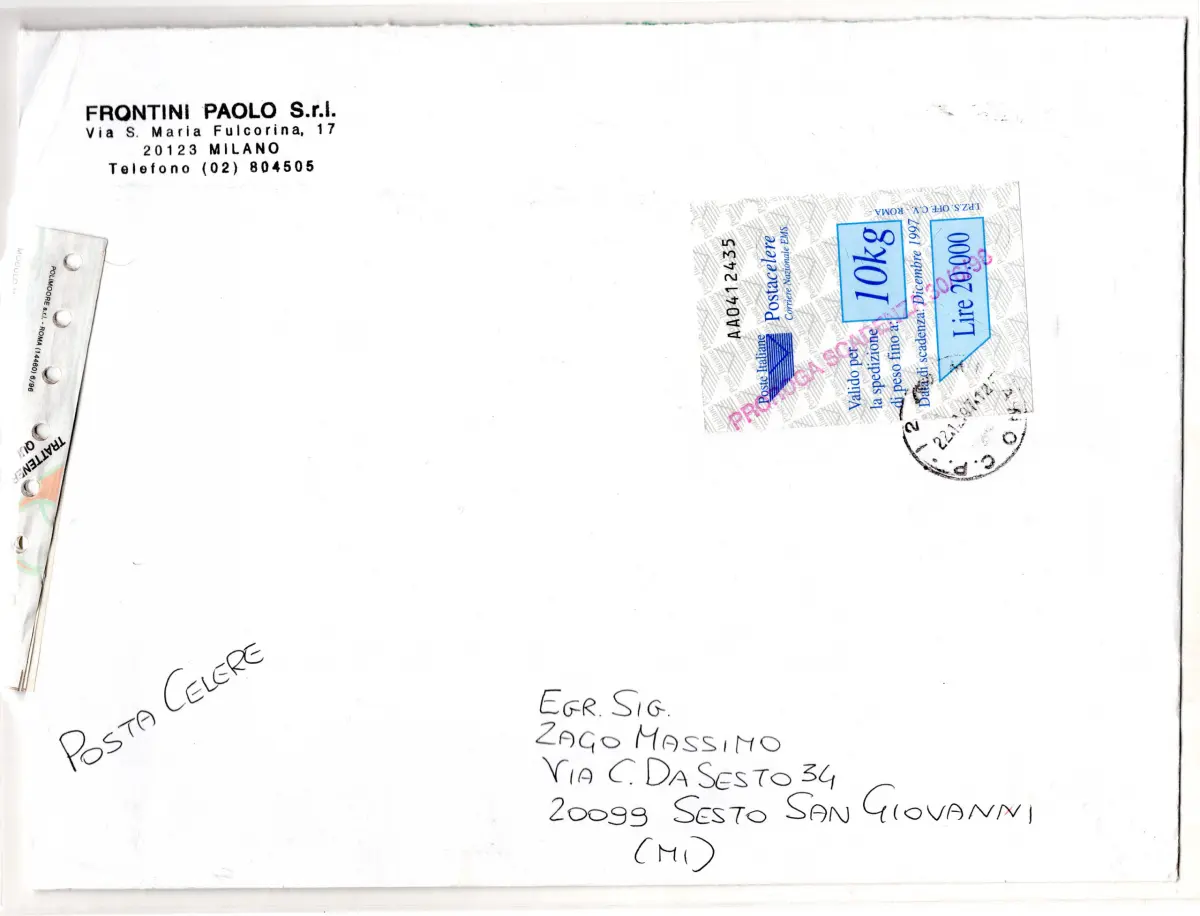 FRONTINI PAOLO S.r.l.
Via S. Maria Fulcorina, 17
20123 MILANO
Telefono (02) 804505
AA0412435
Poste Italiane
Postacelere
Corriere Nazionale EMS
Valido per
la spedizione
di peso fino a
10kg
Data di scadenza: Dicembre 1997
Lire 20.000
I.P.Z.S. OFF. C.V. - ROMA
PROROGA SCADENZA 30/6/98
22.12.97.12
C.P. 12
POLIMOORE s.r.l. - ROMA (14460) 6/96
TRATTENERE
QUI
POSTA CELERE
EGR. SIG.
ZAGO MASSIMO
VIA C. DA SESTO 34
20099 SESTO SAN GIOVANNI
(MI)